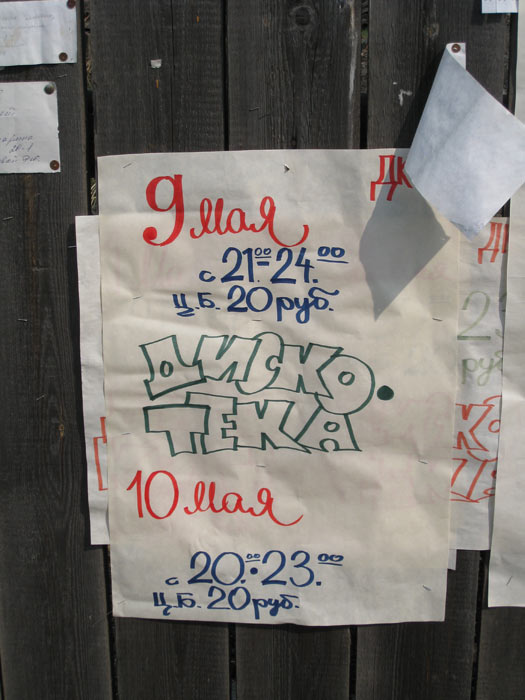 ДК
9 мая
с 21.00 - 24.00
ц.Б. 20 руб.
ДИСКО.
ТЕКА
10 мая
с 20.00 - 23.00
ц.Б. 20 руб.